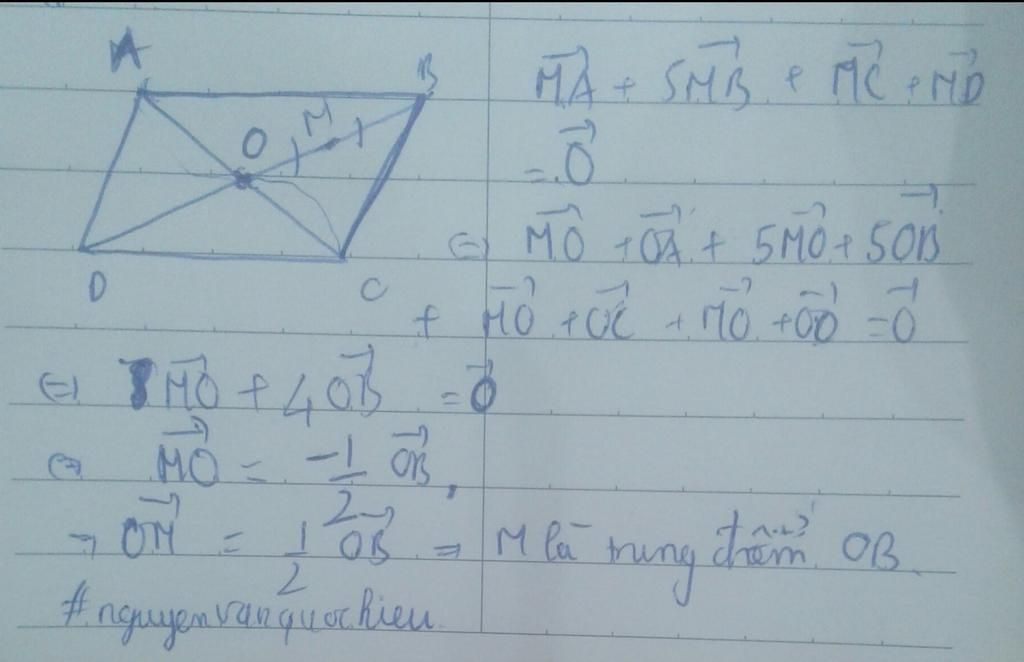 A
B
O
M
D
C
$\overrightarrow{MA} + 5\overrightarrow{MB} + \overrightarrow{MC} + \overrightarrow{MD}$
$= \overrightarrow{O}$
$\Leftrightarrow \overrightarrow{MO} + \overrightarrow{OA} + 5\overrightarrow{MO} + 5\overrightarrow{OB}$
$+ \overrightarrow{MO} + \overrightarrow{OC} + \overrightarrow{MO} + \overrightarrow{OD} = \overrightarrow{O}$
$\Leftrightarrow 8\overrightarrow{MO} + 4\overrightarrow{OB} = \overrightarrow{0}$
$\Leftrightarrow \overrightarrow{MO} = \frac{-1}{2} \overrightarrow{OB},$
$\Rightarrow \overrightarrow{OM} = \frac{1}{2} \overrightarrow{OB} \Rightarrow$ M là trung điểm OB.
#nguyenvanquochieu.